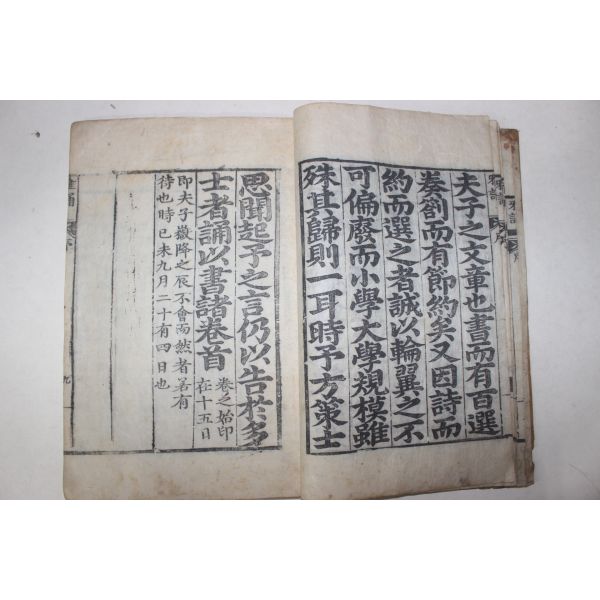 夫子之文章也書而有百選
奏劄而有節約矣又因詩而
約而選之者誠以輪翼之不
可偏廢而小學大學規模雖
殊其歸則一耳時予方策士
思聞起予之言仍以告於多
士者誦以書諸卷首
卷之始印
在十五日
即夫子嶽降之辰不會而然者若有
待也時己未九月二十有四日也
雅誦
雅誦
序
雅誦